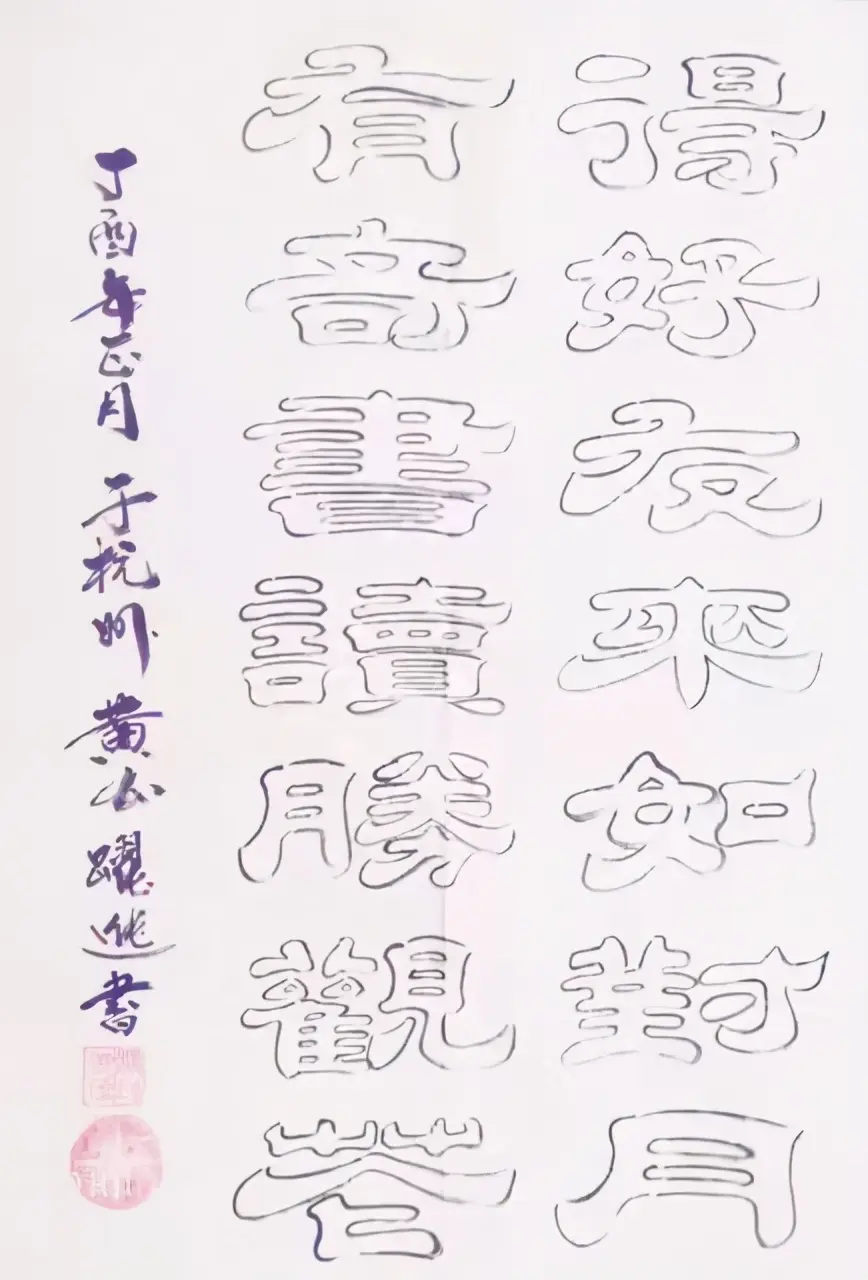 得好友來如對月
有奇書讀勝觀花
丁酉年正月于杭州黃山躍進書